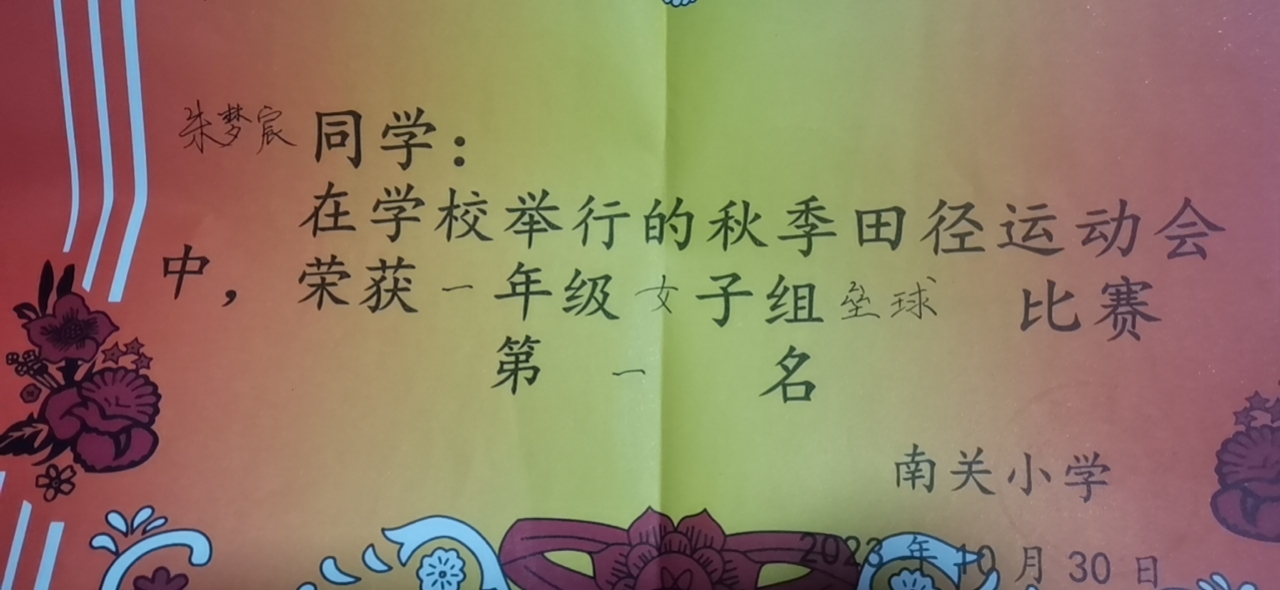 朱梦宸同学：
在学校举行的秋季田径运动会
中，荣获一年级女子组垒球 比赛
第 一 名
南关小学
2023年10月30日